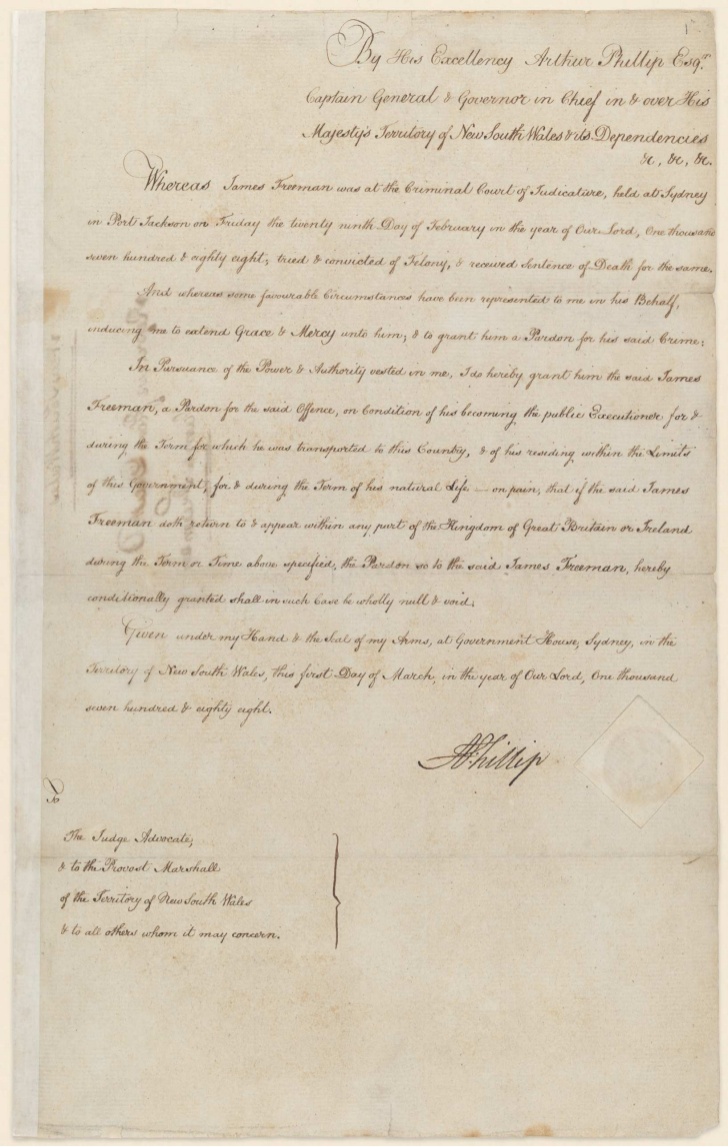 1
By His Excellency Arthur Phillip Esqr.
Captain General & Governor in Chief in & over His
Majesty's Territory of New South Wales & its Dependencies
&c, &c, &c.
Whereas James Freeman was at the Criminal Court of Judicature, held at Sydney
in Port Jackson on Friday the twenty ninth Day of February in the year of Our Lord, One thousand
seven hundred & eighty eight; tried & convicted of Felony, & received Sentence of Death for the same.
And whereas some favourable Circumstances have been represented to me in his Behalf,
inducing me to extend Grace & Mercy unto him; & to grant him a Pardon for his said Crime;
In Pursuance of the Power & Authority vested in me, I do hereby grant him the said James
Freeman, a Pardon for the said Offence, on Condition of his becoming the public Executioner for &
during the Term for which he was transported to this Country, & of his residing within the Limits
of this Government, for & during the Term of his natural Life — on pain, that if the said James
Freeman doth return to & appear within any part of the Kingdom of Great Britain or Ireland
during the Term or Time above specified, the Pardon so to the said James Freeman, hereby
conditionally granted shall in such Case be wholly null & void.
Given under my Hand & the Seal of my Arms, at Government House, Sydney, in the
Territory of New South Wales, this first Day of March, in the year of Our Lord, One thousand
seven hundred & eighty eight.
A Phillip
To
The Judge Advocate,
& to the Provost Marshall
of the Territory of New South Wales
& to all others whom it may concern.